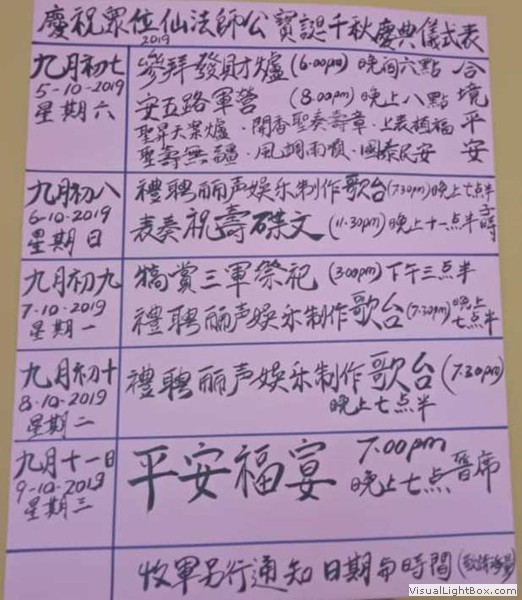 慶祝眾位仙法師公寶誕千秋慶典儀式表
2019
九月初七
5-10-2019
星期六
參拜發財爐(6.00pm)晚间六點
安五路軍營 (8.00pm)晚上八點
聖昇天案爐．開香聖奏壽章．上表植福
聖壽無疆．風調雨順．國泰民安
合境平安
九月初八
6-10-2019
星期日
禮聘丽声娱乐制作歌台(7.30pm)晚上七点半
表奏祝壽碟文(11.30pm)晚上十一点半子時
九月初九
7-10-2019
星期一
犒賞三軍祭祀(3.00pm)下午三点半
禮聘丽声娱乐制作歌台(7.30pm)晚上七点半
九月初十
8-10-2019
星期二
禮聘丽声娱乐制作歌台(7.30pm)
晚上七点半
九月十一日
9-10-2019
星期三
平安福宴 7.00pm
晚上七点 晉席
收軍另行通知日期与時間
VisualLightBox.com